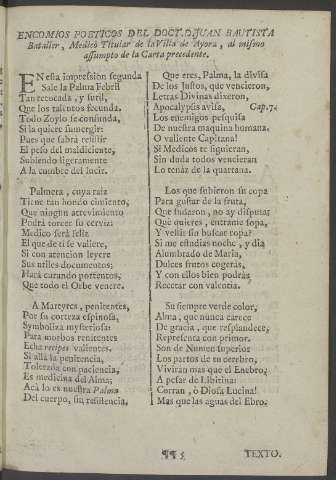 ENCOMIOS POETICOS DEL DOCT. D. JUAN BAUTISTA
Bataller, Medico Titular de la Villa de Ayora, al mismo
assumpto de la Carta precedente.
EN esta impression segunda
Sale la Palma Febril
Tan retocada, y sutil,
Que los talentos fecunda.
Todo Zoylo se confunda,
Si la quiere sumergir:
Pues que sabrà resistir
El peso del maldiciente,
Subiendo ligeramente
A la cumbre del lucir.
Palmera, cuya raiz
Tiene tan hondo cimiento,
Que ningun atrevimiento
Podrà torcer su cerviz:
Medico serà feliz
El que de ti se valiere,
Si con atencion leyere
Sus utiles documentos;
Harà curando portentos,
Que todo el Orbe venere.
A Martyres, penitentes,
Por su corteza espinosa,
Symboliza mysteriosa:
Para morbos renitentes
Echa recipes valientes.
Si allà la penitencia,
Tolerada con paciencia,
Es medicina del Alma;
Acà lo es nuestra Palma
Del cuerpo, sin resistencia.
Que eres, Palma, la divisa
De los Justos, que vencieron,
Letras Divinas dixeron,
Apocalypsis avisa, Cap. 7.
Los enemigos pesquisa
De nuestra maquina humana.
O valiente Capitana!
Si Medicos te siguieran,
Sin duda todos vencieran
Lo tenàz de la quartana.
Los que subieron su copa
Para gustar de la fruta,
Que sudaron, no ay disputa:
Què quieres, entrame sopa,
Y vestir sin buscar ropa?
Si me estudias noche, y dia
Alumbrado de Maria,
Dulces frutos cogeràs,
Y con ellos bien podràs
Recetar con valentia.
Su siempre verde color,
Alma, que nunca carece
De gracia, que resplandece,
Representa con primor.
Son de Numen superior
Los partos de su cerebro,
Viviràn mas que el Enebro,
A pesar de Libitina:
Corran, ò Diosa Lucina!
Mas que las aguas del Ebro.
¶¶ 5 TEXTO.